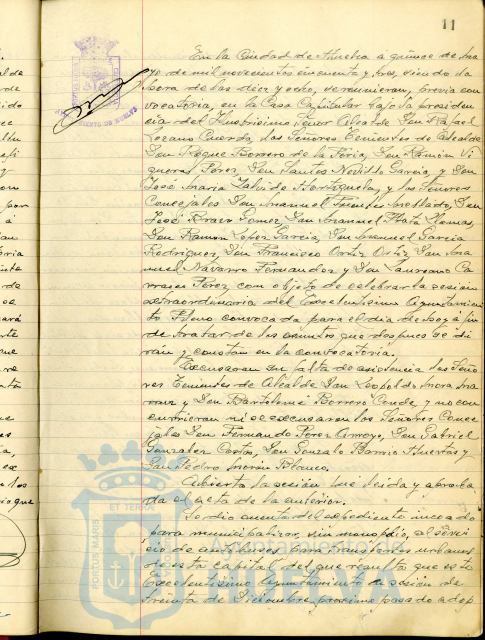 11
En la Ciudad de Huelva a quince de Ma
yo de mil novecientos cincuenta y tres, siendo la
hora de las diez y ocho, se reunieron, previa con
vocatoria, en la Casa Capitular bajo la presiden
cia del Ilustrisimo Señor Alcalde Don Rafael
Lozano Cuerda, los Señores Tenientes de Alcalde
Don Roque Borrero de la Feria, Don Ramón Fi
gueroa Perez, Don Santos Novillo Garcia, y Don
José Maria Zalvide Hortiguela, y los Señores
Concejales Don Manuel Fuentes Mellado, Don
José Bravo Gomez, Don Manuel Plata Llamas,
Don Ramón Lopez Garcia, Don Manuel Garcia
Rodriguez, Don Francisco Ortiz Ortiz, Don Ma
nuel Navarro Fernandez y Don Laureano Ca
rrasco Perez, con objeto de celebrar la sesión
extraordinaria del Excelentisimo Ayuntamien
to Pleno convocada para el dia de hoy á fin
de tratar de los asuntos que despues se di
rán y constan en la convocatoria.
Excusaron su falta de asistencia los Seño
res Tenientes de Alcalde Don Leopoldo Mora Ma
y Don Bartolomé Borrero Conde, y no con
currieron ni se excusaron los Señores Conce
jales Don Fernando Perez Arroyo, Don Gabriel
Gonzalez Cortes, Don Gonzalo Barrio Huertas y
Don Pedro Morón Blanco.
Abierta la sesión fué leida y aproba
da el acta de la anterior.
Se dió cuenta del expediente incoado
para municipalizar, sin monopolio, el servi
cio de autobuses para transportes urbanos
de esta capital del que resulta que este
Excelentisimo Ayuntamiento en sesión de
treinta de Diciembre proximo pasado adop
PORTUS MARIS
ET TERRAE
Ayuntamiento de
Huelva